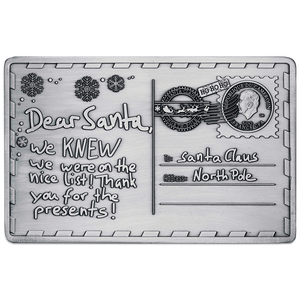 Dear Santa,
we KNEW
we were on the
nice list! Thank
you for the
presents!
HO HO HO
To: Santa Claus
Address: North Pole